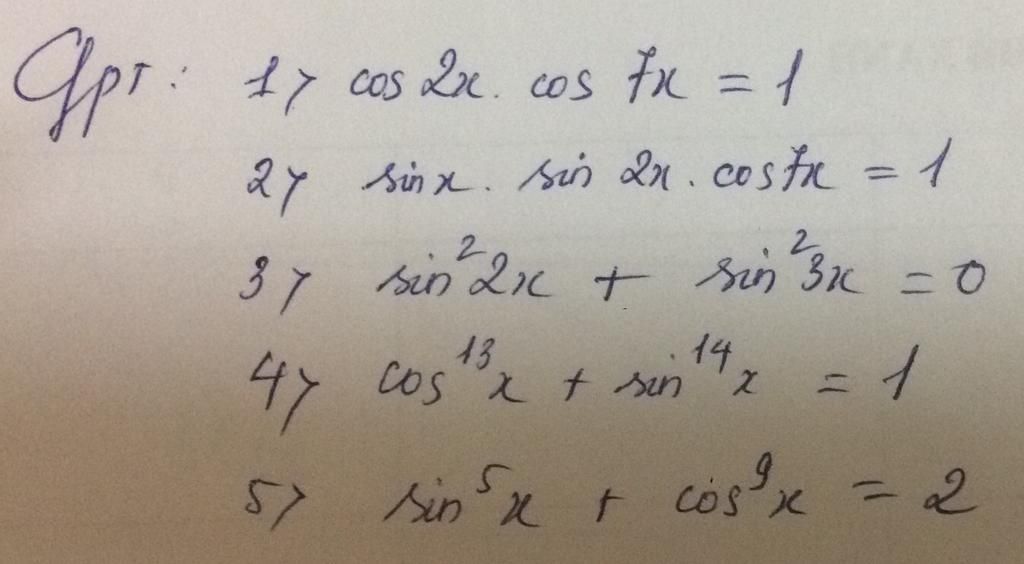 Gpt: 1> cos 2x. cos 7x = 1
2> sinx. sin 2x. cos7x = 1
3> sin²2x + sin²3x = 0
4> cos¹³x + sin¹⁴x = 1
5> sin⁵x + cos⁹x = 2